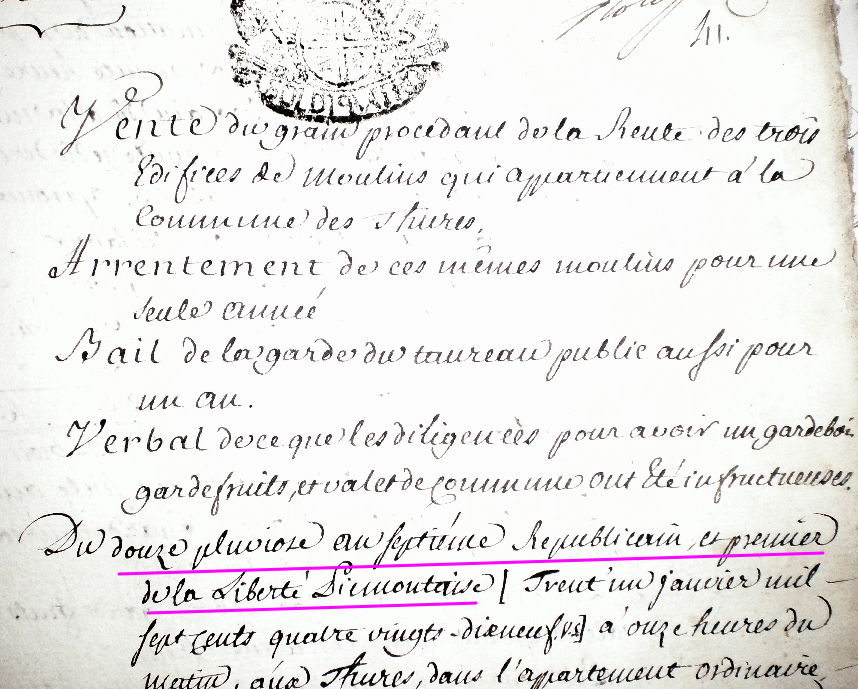 41.
Vente du grain procedant de la Rente des trois
Edifices de moulins qui appartiennent á la
Commune des Thures.
Arrentement de ces mêmes moulins pour une
seule année
Bail de la garde du taureau public aussi pour
un an.
Verbal de ce que les diligences pour avoir un gardebois
gardefruits, et valet de commune ont été infructueuses.
Du douze pluviose an septiéme Republicain, et premier
de la Liberté Piemontaise [ Trent'un janvier mil
sept cents quatre vingts-dixneuf, v.s.] á onze heures du
matin, aux Thures, dans l'appartement ordinaire